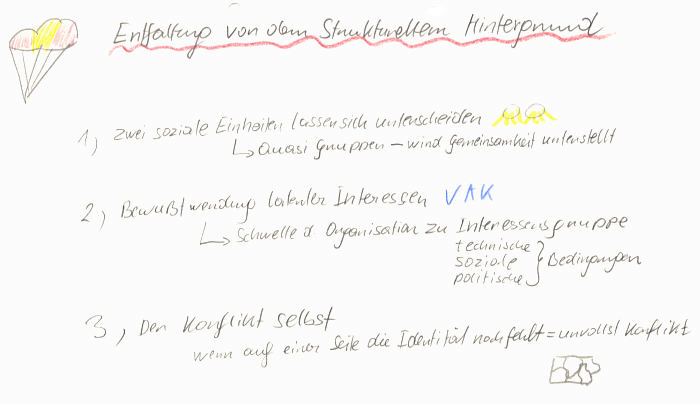 Entfaltung von dem Strukturellem Hintergrund
1, zwei soziale Einheiten lassen sich unterscheiden
Quasi Gruppen – wird Gemeinsamkeit unterstellt
2, Bewußtwerdung latenter Interessen VAK
Schwelle d Organisation zu Interessensgruppe
technische
soziale
politische
Bedingungen
3, Der Konflikt selbst
wenn auf einer Seite die Identität noch fehlt = unvollst Konflikt